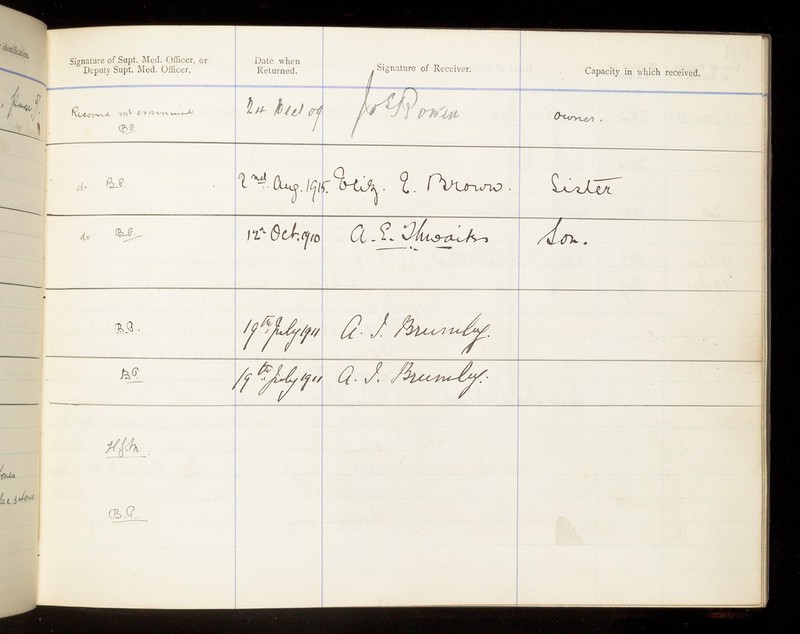 identification.
Signature of Supt. Med. Officer, or
Deputy Supt. Med. Officer.
Date when
Returned.
Signature of Receiver.
Capacity in which received.
not examined
B.P.
24 Dec 09
Jos Bowen
owner.
do B.P.
2nd Aug. 1915.
Eliz. E. Brown.
Sister
do B.P.
12th Oct. 1910
A. E. Thwaites
Son.
B.P.
19th July 1911
A. J. Brumby.
B.P.
19th July 1911
A. J. Brumby.
B.P.